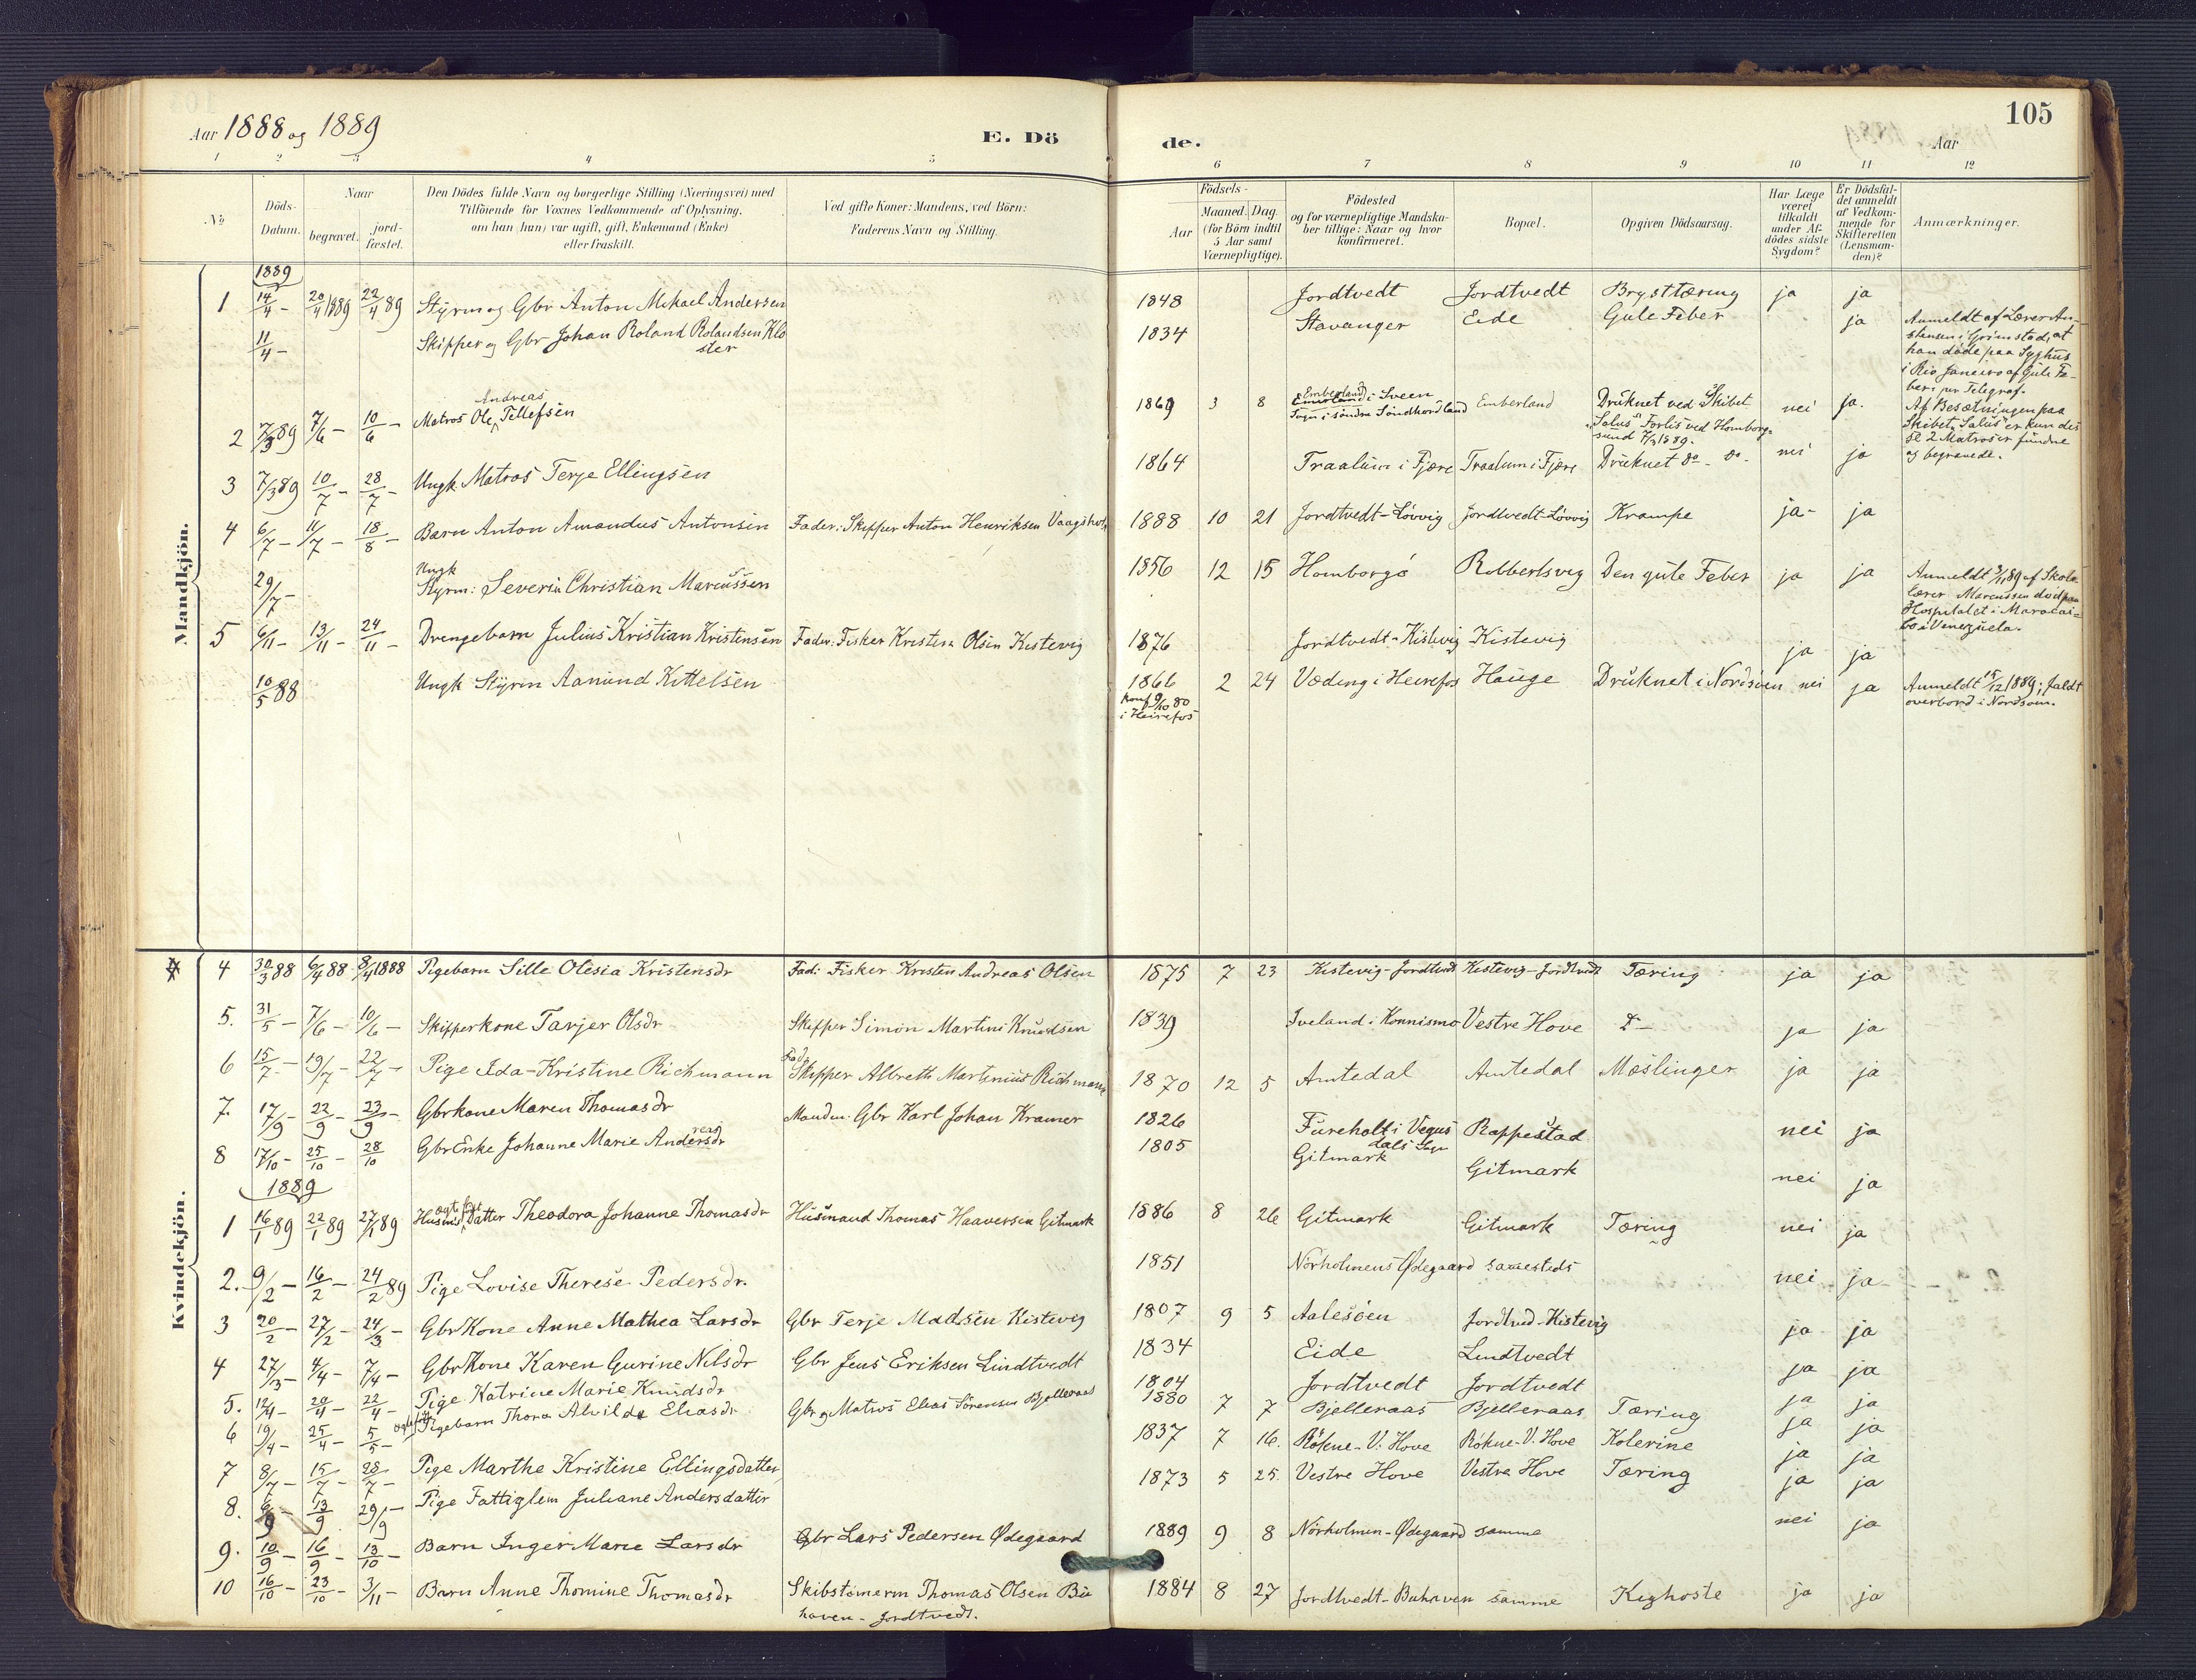 105
Aar 1888 og 1889
E. Dö
de.
Aar
1 2 3 4 5 6 7 8 9 10 11 12
No
Döds-Datum.
Naar
begravet.
jord-fæstet.
Den Dödes fulde Navn og borgerlige Stilling (Næringsvei) med
Tilföiende for Voxnes Vedkommende af Oplysning,
om han (hun) var ugift, gift, Enkemand (Enke)
eller fraskilt.
Ved gifte Koner: Mandens, ved Börn:
Faderens Navn og Stilling.
Födsels-
Aar
Maaned. Dag.
(for Börn indtil
5 Aar samt
Værnepligtige).
Födested
og for værnepligtige Mandska-
ber tillige: Naar og hvor
konfirmeret.
Bopæl.
Opgiven Dödsaarsag.
Har Læge
været
tilkaldt
under Af-
dödes sidste
Sygdom?
Er Dödsfal-
det anmeldt
af Vedkom-
mende for
Skifteretten
(Lensman-
den)?
Anmærkninger.
Mandkjön.
1889
1 14/4 - 20/4 1889 22/4 89 Styrm og Gbr Anton Mikael Andersen 1848 Jordtvedt Jordtvedt Brysttæring ja ja
11/4 - Skipper og Gbr Johan Roland Rolandsen Klo
ster 1834 Stavanger Eide Gule Feber ja Anmeldt af Lærer
i Grimstad, at
han döde paa Syghus
i Rio Janeiro af Gule Fe-
ber, pr Telegraf.
2 7/3 89 7/6 - 10/6 - Matros Ole Andreas Tellefsen 1869 3 8 Emberland i Sveen
Sogn i söndre Söndhordland Emberland Druknet ved Skibet
"Salus" Forlis ved Homborg-
sund 7/3 1889. nei ja. Af Besætningen paa
Skibet "Salus" er kun des
se 2 Matroser fundne
og begravede.
3 7/3 89 10/7 - 28/7 - Ungk. Matros Terje Ellingsen 1864 Traalum i Fjære Traalum i Fjære Druknet do - do - nei ja
4 6/7 - 11/7 - 18/8 - Barn Anton Amandus Antonsen Fader: Skipper Anton Henriksen 1888 10 21 Jordtvedt-Lövvig Jordtvedt-Lövvig Krampe ja - ja
29/7 - Ungk
Styrm: Severin Christian Marcussen 1856 12 15 Homborgö Robbertsvig Den gule Feber ja ja Anmeldt 3/11 89 af Skole
lærer Marcussen död paa
Hospitalet i Maracai-
bo i Venezuela.
5 6/11 - 13/11 - 24/11 - Drengebarn Julius Kristian Kristensen Fader: Fisker Kristen Olsen Kistevig 1876 Jordtvedt-Kistevig Kistevig ja ja
10/5 88 Ungk Styrm Aanund Kittelsen 1866
konf 9/10 80
i Heirefos 2 24 Væding i Heirefos Hauge Druknet i Nordsöen nei ja Anmeldt 15/12 1889; faldt
overbord i Nordsöen.
Kvindekjön.
4 30/3 88 6/4 88 8/4 1888 Pigebarn Sille Olesia Kristensdr Fad: Fisker Kristen Andreas Olsen 1875 7 23 Kistevig-Jordtvedt Kistevig-Jordtvedt Tæring ja ja
5. 31/5 - 7/6 - 10/6 - Skipperkone Tarjer Olsdr Skipper Simon Martini Knudsen 1839 Iveland i Konnismo Vestre Hove ja ja
6 15/7 - 19/7 - 22/7 - Pige Ida-Kristine Richmann Fad.
Skipper Albreth Martinius Richmann 1870 12 5 Amtedal Amtedal Mæslinger ja ja
7. 17/9 - 22/9 - 23/9 - Gbrkone Maren Thomasdr Manden: Gbr Karl Johan Kramer 1826 Fureholt i Vegus
dals Sogn Rappestad nei ja
8 17/10 - 25/10 - 28/10 Gbr Enke Johanne Marie Andersdr 1805 Gitmark Gitmark nei ja
1889
1 16/1 89 22/1 89 27/1 89 Husmds Datter Theodora Johanne Thomasdr Husmand Thomas Haaversen Gitmark 1886 8 26 Gitmark Gitmark Tæring nei ja
2. 9/2 - 16/2 - 24/2 89 Pige Lovise Therese Pedersdr. 1851 Norholmens Ödegaard samesteds nei ja
3 20/2 - 27/2 - 24/3 - GbrKone Anne Mathea Larsdr Gbr Terje Madsen Kistevig 1807 9 5 Aalesöen Jordtved-Kistevig ja ja
4 27/3 - 4/4 - 7/4 - GbrKone Karen Gurine Nilsdr Gbr Jens Eriksen Lindtvedt 1834 Eide Lindtvedt ja ja
5. 12/4 - 20/4 - 22/4 - Pige Katrine Marie Knudsdr 1804 Jordtvedt Jordtvedt ja ja
6 19/4 - 25/4 - 5/5 - Pigebarn Thora Alvilde Eliasdr Gbr og Matros Elias Sörensen Bjelleraas 1880 7 7 Bjelleraas Bjelleraas Tæring ja ja
7 8/7 - 15/7 - 28/7 - Pige Marthe Kristine Ellingsdatter 1837 7 16. Rökne-V. Hove Rökne-V. Hove Kolerine ja ja
8. 6/9 - 13/9 29/9 - Pige Fattiglem Juliane Andersdatter 1873 5 25. Vestre Hove Vestre Hove Tæring ja ja
9. 10/9 - 16/9 - 13/10 - Barn Inger Marie Larsdr Gbr Lars Pedersen Ødegaard 1889 9 8 Nörholmen-Ødegaard samme nei ja
10 16/10 - 23/10 - 3/11 - Barn Anne Thomine Thomasdr Skibstömerm Thomas Olsen Bu
haven - Jordtvedt. 1884 8 27 Jordtvedt-Buhaven samme Kighoste ja ja